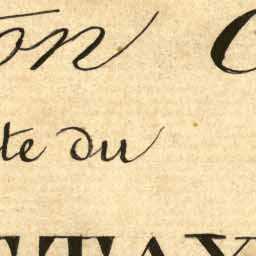 on C
te du
TTAY